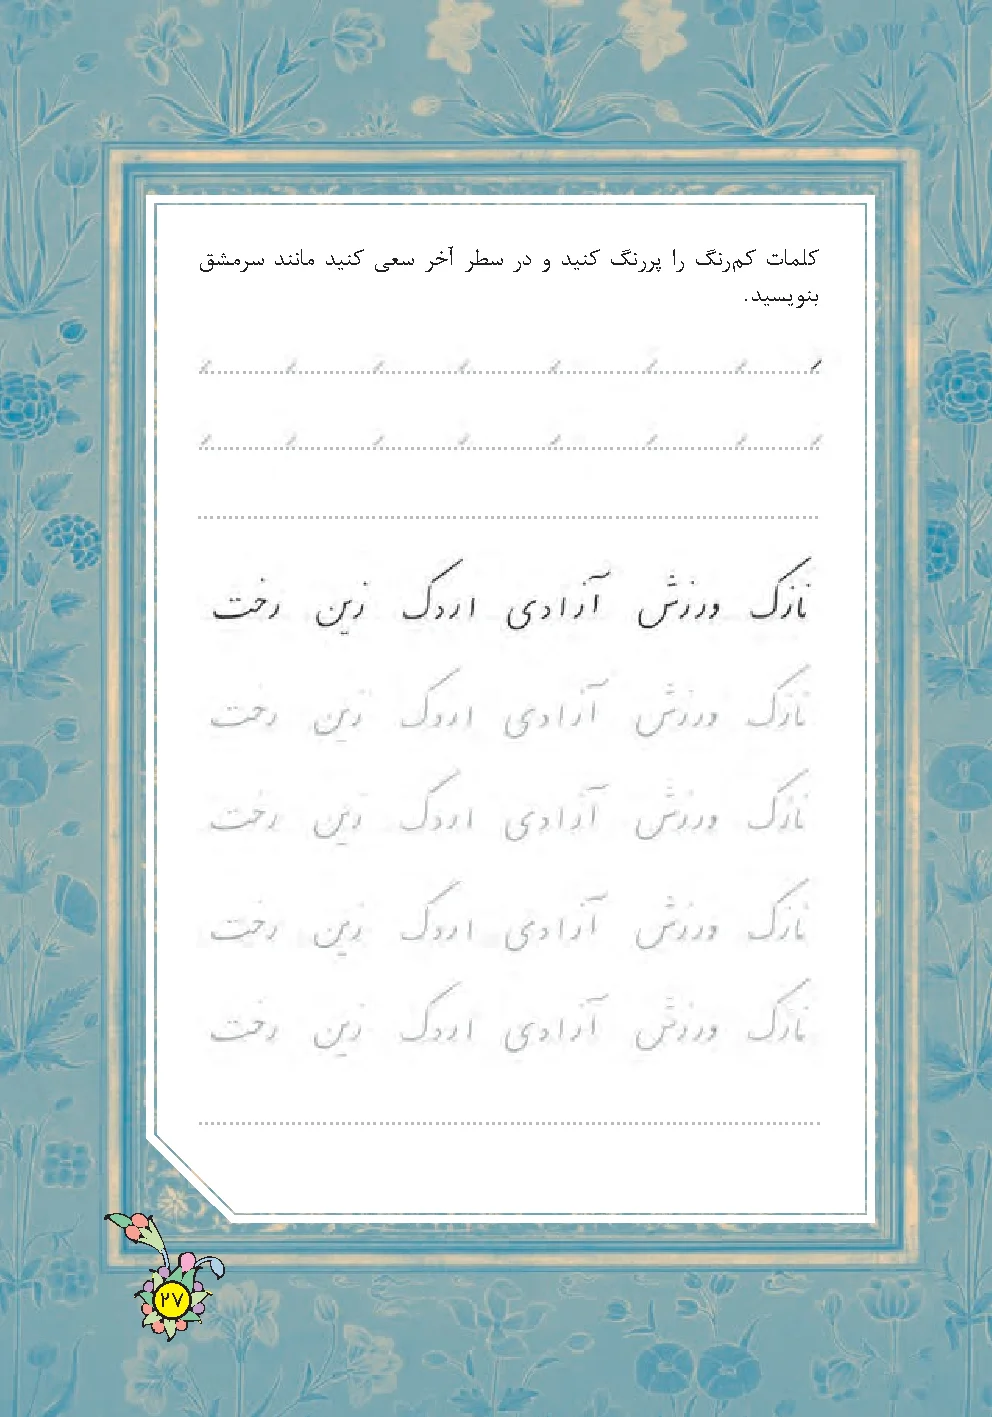 کلمات کم‌رنگ را پررنگ کنید و در سطر آخر سعی کنید مانند سرمشق
بنویسید.
ر ر ر ر ر ر ر ر
ر ر ر ر ر ر ر ر
نازک ورزش آزادی اردک زین رخت
نازک ورزش آزادی اردک زین رخت
نازک ورزش آزادی اردک زین رخت
نازک ورزش آزادی اردک زین رخت
نازک ورزش آزادی اردک زین رخت
۲۷